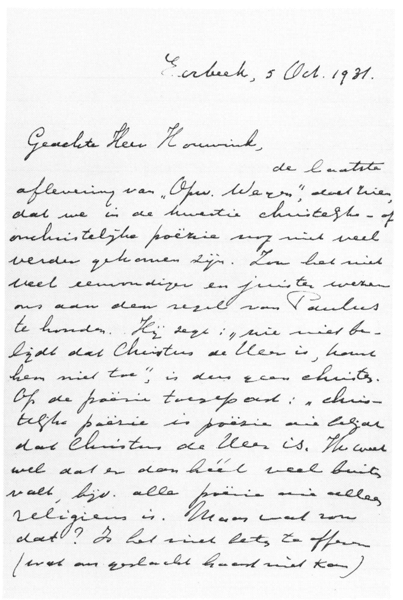 Eerbeek, 5 Oct. 1931.
Geachte Heer Houwink,
de laatste
aflevering van „Opw. Wegen", doet zien,
dat we in de kwestie christelijke - of
onchristelijke poëzie nog niet veel
verder gekomen zijn. Zou het niet
veel eenvoudiger en juister wezen
ons aan den regel van Paulus
te houden. Hij zegt: „wie niet be-
lijdt dat Christus de Heer is, komt
hem niet toe", is dus geen christen.
Op de poëzie toegepast: „chris-
telijke poëzie is poëzie die belijdt
dat Christus de Heer is. Ik weet
wel dat er dan héél veel buiten
valt, bijv. alle poëzie die alleen
religieus is. Maar wat zou
dat? Is het niet iets te offeren
(wat ons geslacht haast niet kan)